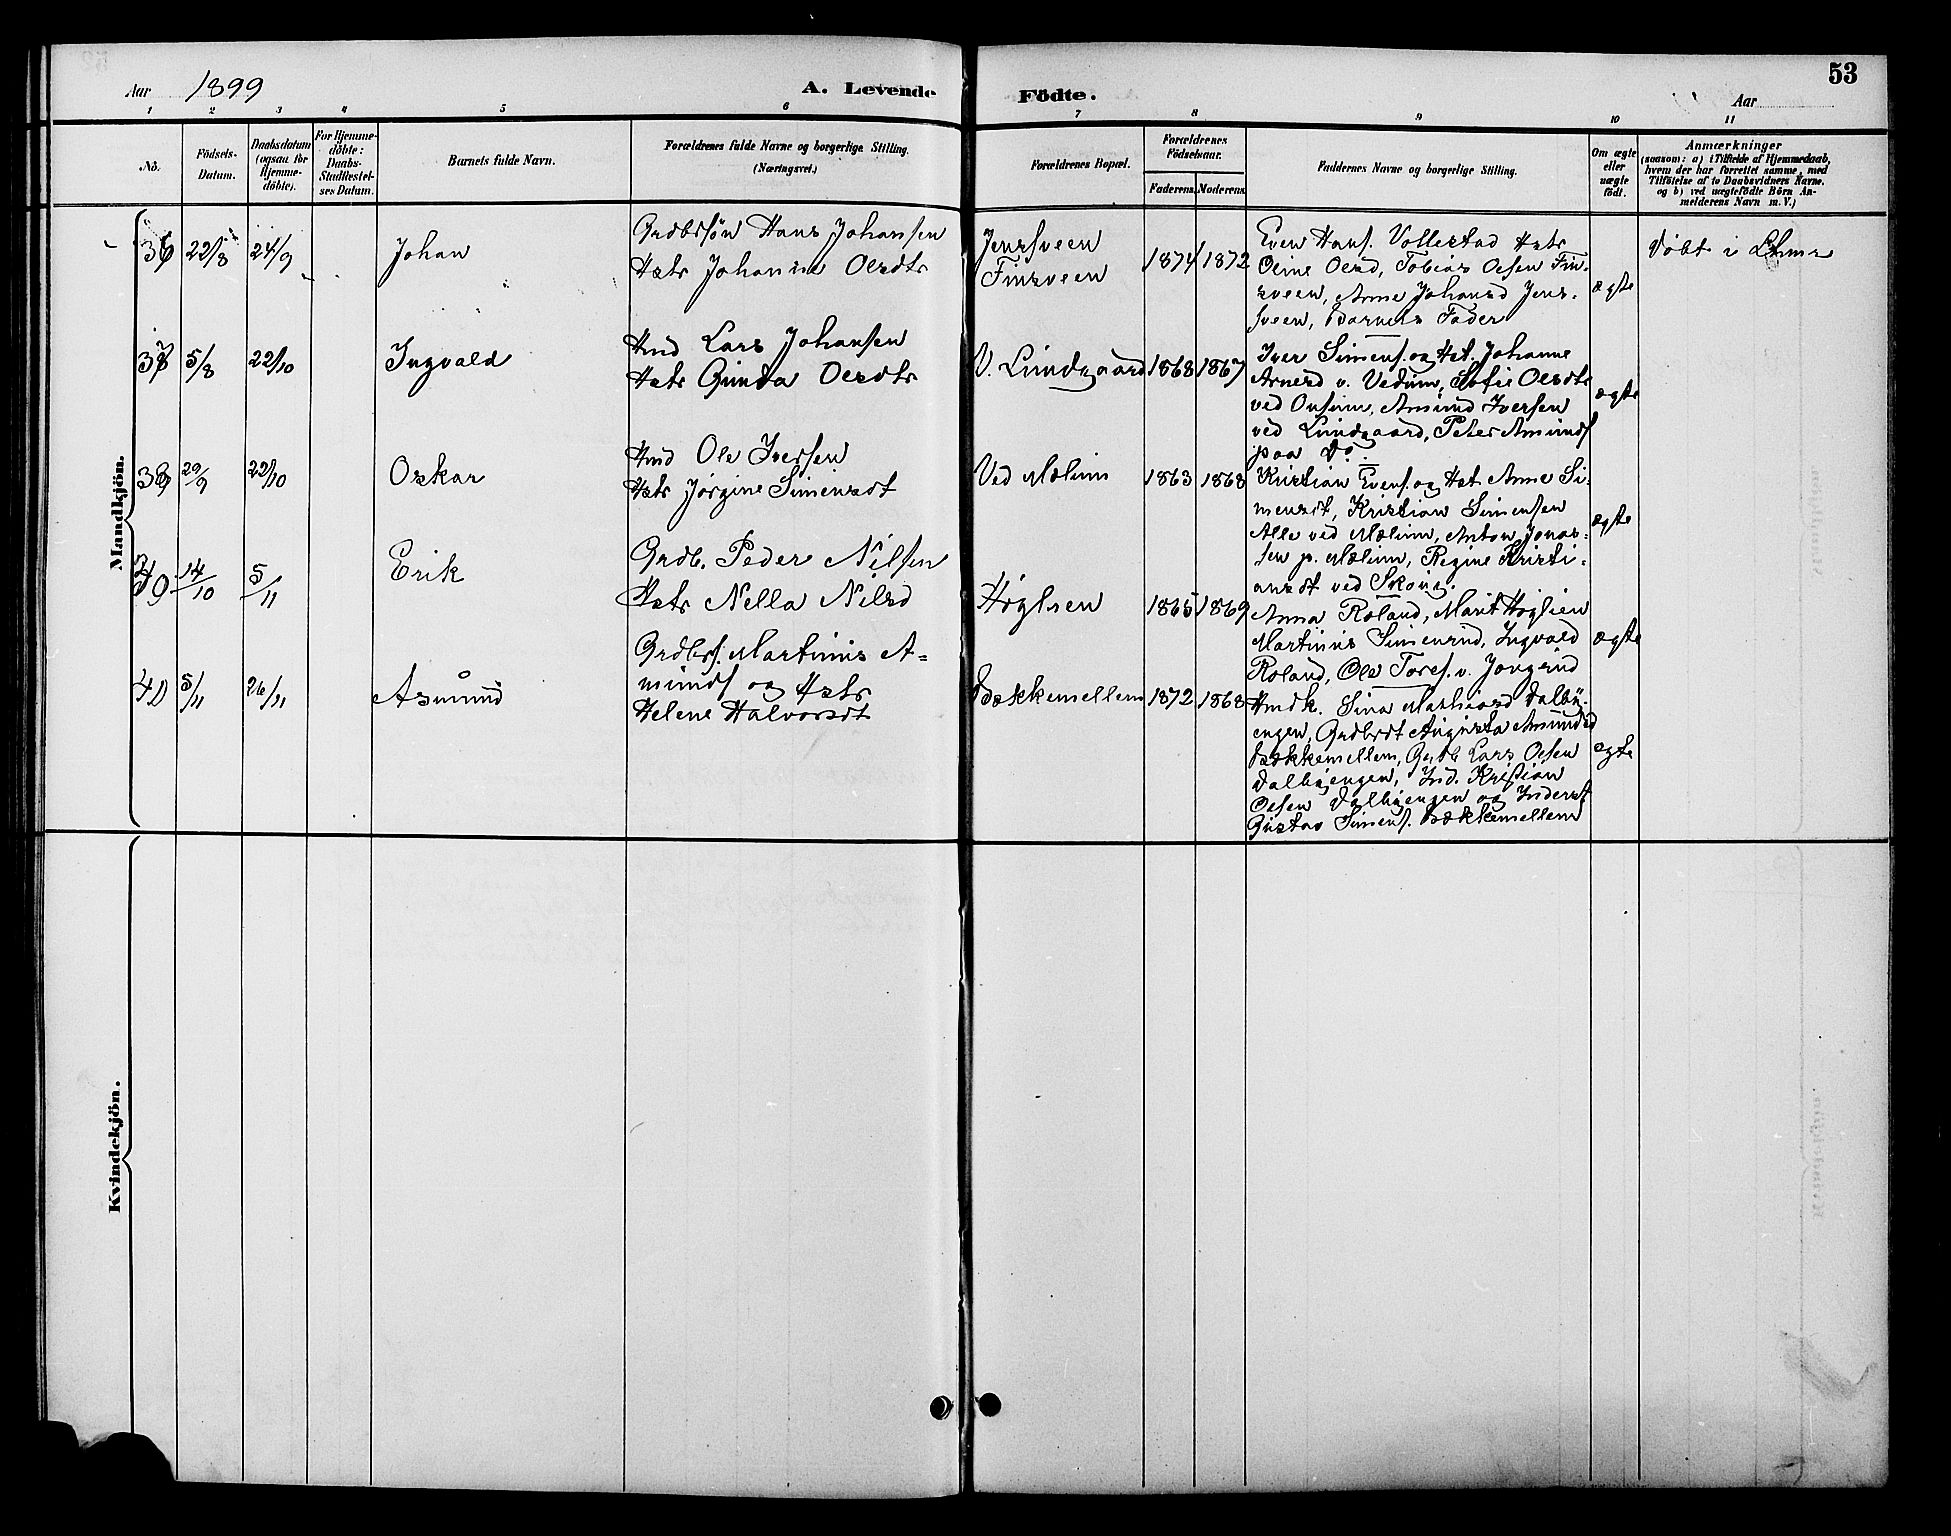 53
Aar 1899
A. Levende Födte.
Aar
1 2 3 4 5 6 7 8 9 10 11
No.
Födsels-Datum.
Daabsdatum (ogsaa for Hjemme-döbte).
For Hjemme-döbte: Daabs-Stadfæstel-ses Datum.
Barnets fulde Navn.
Forældrenes fulde Navne og borgerlige Stilling. (Næringsvei.)
Forældrenes Bopæl.
Forældrenes Födselsaar.
Faderens. Moderens.
Faddernes Navne og borgerlige Stilling.
Om ægte eller uægte födt.
Anmærkninger
(saasom: a) i Tilfælde af Hjemmedaab,
hvem der har forrettet samme, med
Tilföielse af to Daabsvidners Navne.
og b) ved uægtefödte Börn An-
melderens Navn m. V.)
Mandkjön.
36 22/8 24/9 Johan
Grdbrsøn Hans Johansen
Hstr Johanne Olsdtr
Jensveen
Finsveen
1874 1872
Even Hans. Vollestad Hstr
Oline Olsd, Tobias Olsen Fin-
sveen, Anne Johansd Jens-
sveen, Barnets Fader
ægte
Døbt i
37 5/8 22/10 Ingvald
Hmd Lars Johansen
Hstr Gunda Olsdtr
V. Lundgaard
1868 1867
Iver Simens. og Hst. Johanne
Arnesd v. Vedum, Sofie Olsdtr
ved Onsum, Amund Iversen
ved Lundgaard, Peter Amunds
paa do.
ægte
38 29/9 22/10 Oskar
Hmd Ole Iversen
Hstr Jørgine Simensdt
Ved Mælum
1863 1868
Kristian Evens. og Hst. Anne Si-
mensdt, Kristian Simensen
Alle ved Mælum, Anton Jonas-
sen p. Mælum, Regine Kristi-
ansdt ved
ægte
39 14/10 5/11 Erik
Grdb. Peder Nilsen
Hstr Nella Nilsd
Høglien
1865 1869
Anna Roland, Marit Høglien
Martinus Simenrud, Ingvald
Roland, Ole Tores. v. Jongrud
ægte
40 5/11 26/11 Asmund
Grdbrs. Martinus A=
munds og Hstr
Helene Halvorsdt
Bækkemellem
1872 1868
Hmdk. Sina Mathiasd Dalby-
engen, Grdbrdt Augusta Amundsd
Bækkemellem, Grdb Lars Olsen
Dalbyengen, Ind. Kristian
Olsen Dalbyengen og Inderst
Gustav Simens. Bækkemellem
ægte
Kvindekjön.